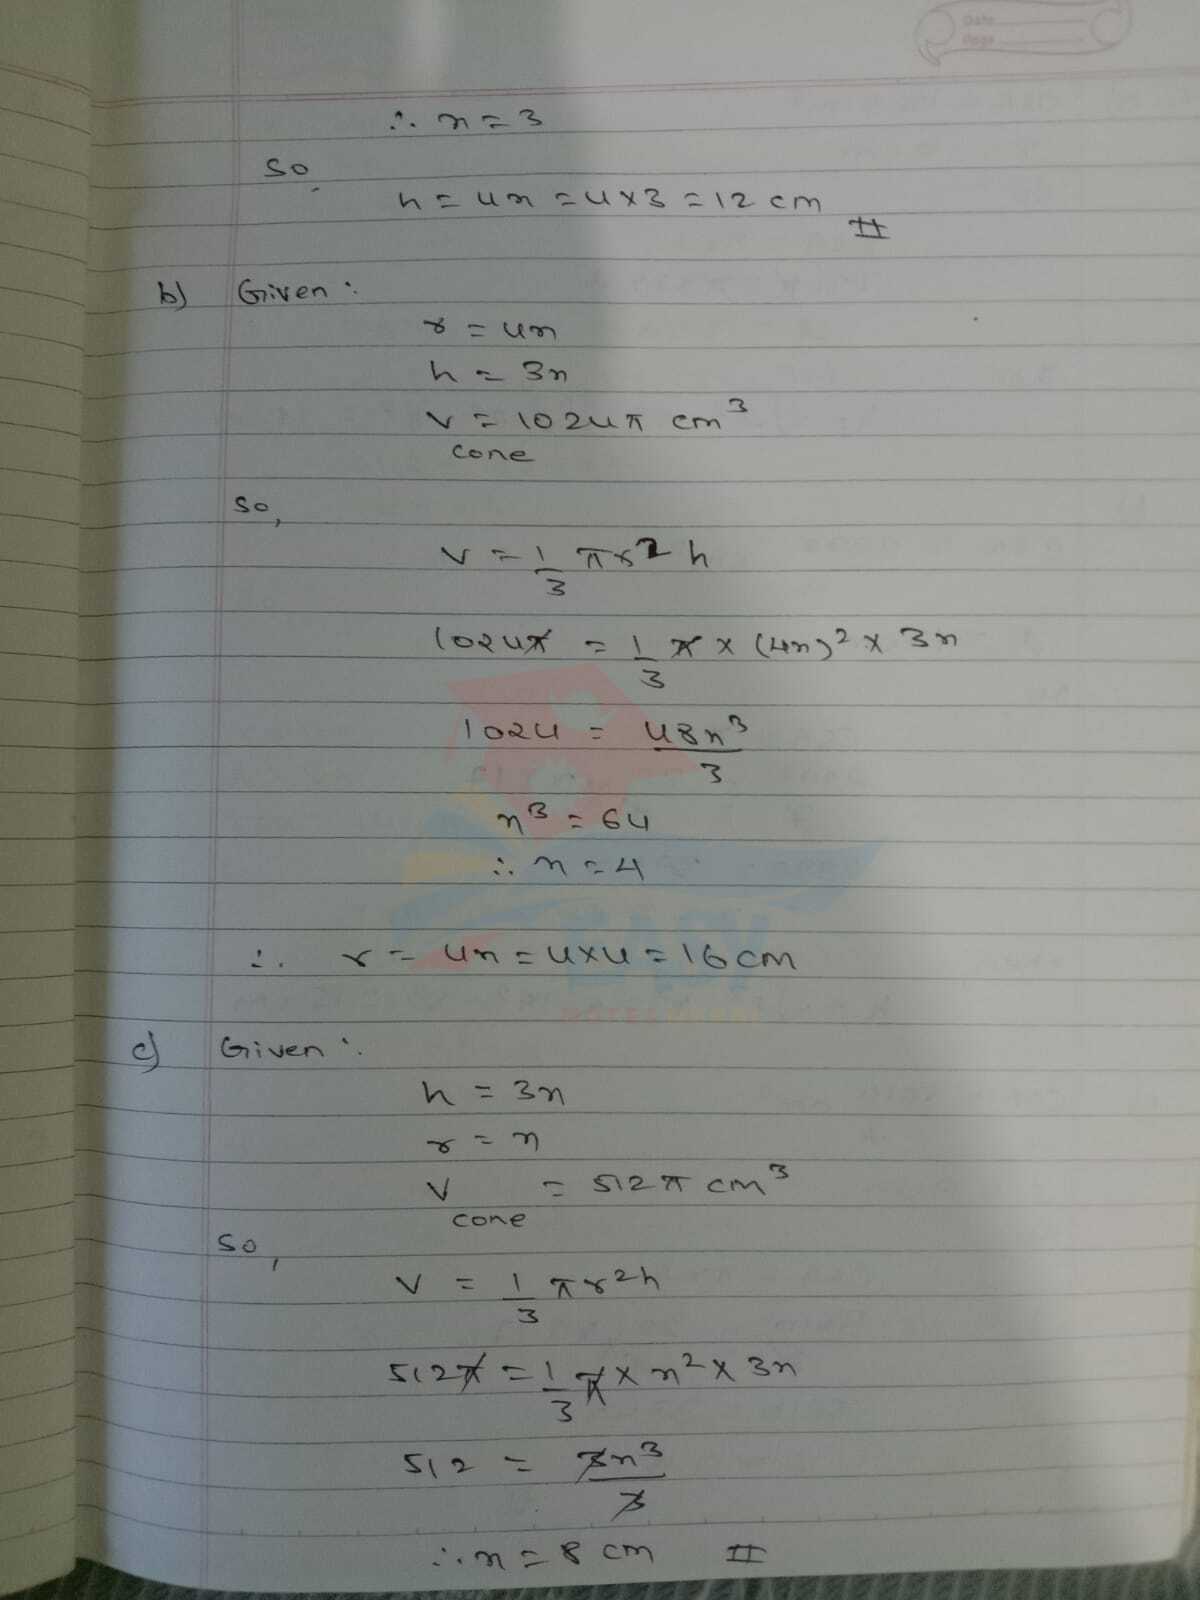 Date
Page
∴ x = 3
So,
h = 4x = 4×3 = 12 cm
b) Given :
r = 4x
h = 3x
V = 1024π cm³
cone
So,
V = 1/3 πr² h
1024π = 1/3 π × (4x)² × 3x
1024 = 48x³/3
x³ = 64
∴ x = 4
∴ r = 4x = 4×4 = 16 cm
EASY
c) Given :
h = 3x
r = x
V = 512π cm³
cone
So,
V = 1/3 πr²h
512π = 1/3 π × x² × 3x
512 = 3x³/3
∴ x = 8 cm